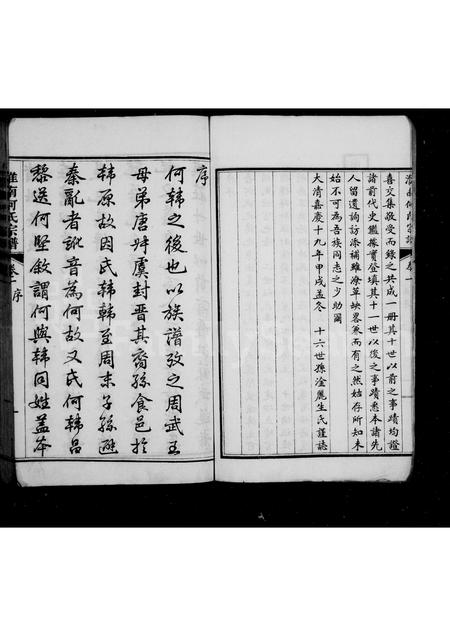 喜交集敬受而錄之共成一冊其十世以前之事蹟均證
諸前代史鑑據實登填其十一世以後之事蹟悉本諸先
人留遺詢訪添補雖潦草缺畧兼而有之然姑存所知未
始不可為吾族同志之少助爾
大清嘉慶十九年甲戌孟冬 十六世孫淦麗生氏謹誌
序
何韓之後也以族譜攷之周武王
母弟唐叔虞封晋其裔孫食邑於
韓原故因氏韓韓至周末子孫避
秦亂者訛音為何故又氏何韓昌
黎送何堅敘謂何與韓同姓蓋本
淮南何氏宗譜 卷一 序